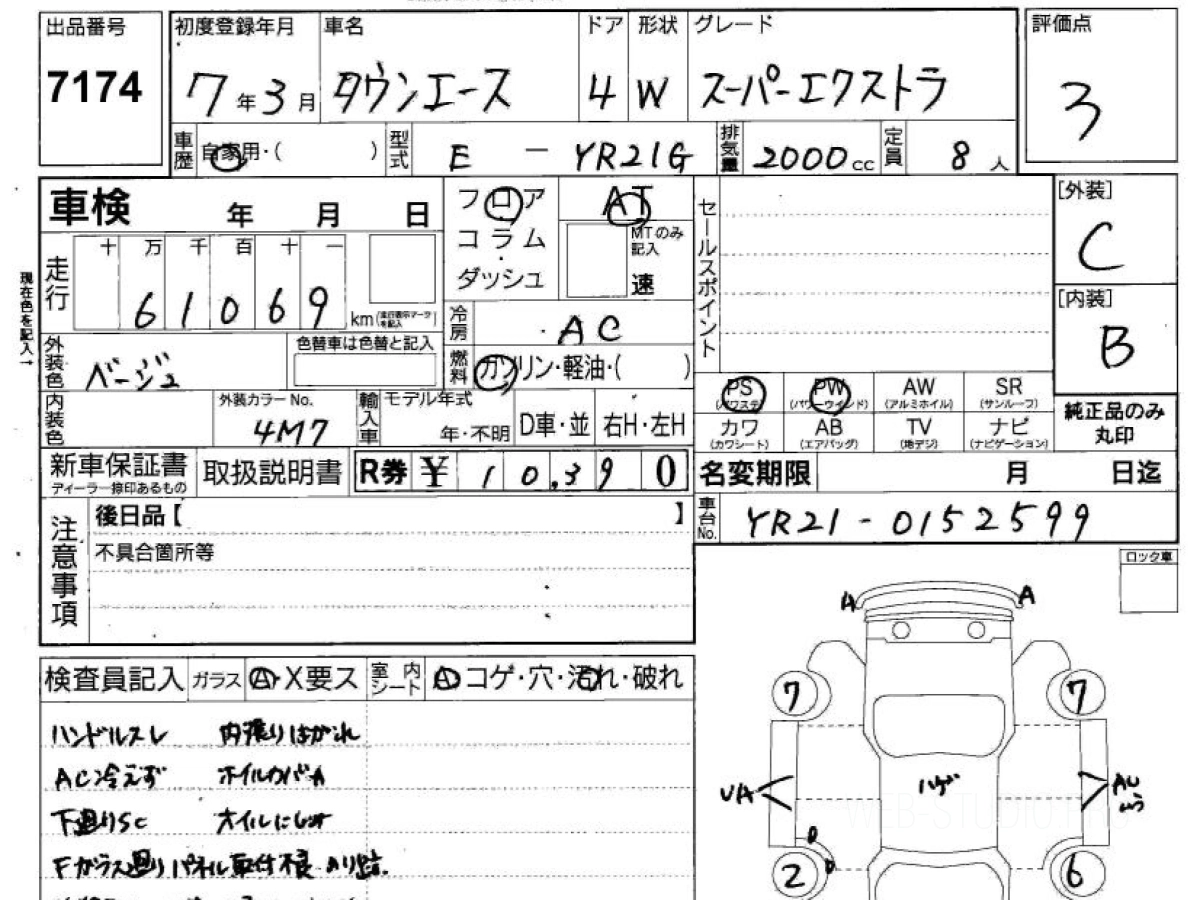 出品番号 初度登録年月 車名 ドア 形状 グレード 評価点
7174 7年3月 タウンエース 4 W スーパーエクストラ 3
車歴 自家用・( ) 型式 E - YR21G 排気量 2000cc 定員 8人
車検 年 月 日
フロア AT
コラム MTのみ記入
ダッシュ 速
セールスポイント
[外装]
C
[内装]
B
現在色を記入→
走行 十万千百十一
61069 km(走行表示マークを記入)
冷房 AC
外装色 ベージュ 色替車は色替と記入
燃料 ガソリン・軽油・( )
PS (パワステ) PW (パワーウインド) AW (アルミホイル) SR (サンルーフ)
カワ (カワシート) AB (エアバッグ) TV (地デジ) ナビ (ナビゲーション)
純正品のみ丸印
内装色 外装カラーNo. 4M7 輸入車 モデル年式 年・不明 D車・並 右H・左H
新車保証書 ディーラー捺印あるもの 取扱説明書 R券 ¥ 10,390
名変期限 月 日迄
車台No. YR21-0152599
注意事項
後日品【 】
不具合箇所等
ロック車
A A
7 7
検査員記入 ガラス A・X要ス 室内シート A コゲ・穴・汚れ・破れ
ハンドルスレ 内張りはがれ
AC冷えず ホイルカバーA
下廻りSC オイルにじみ
Fガラス廻りパネル取付不良 のり跡.
UA ハゲ AU
2 6
WEB-STUDIO